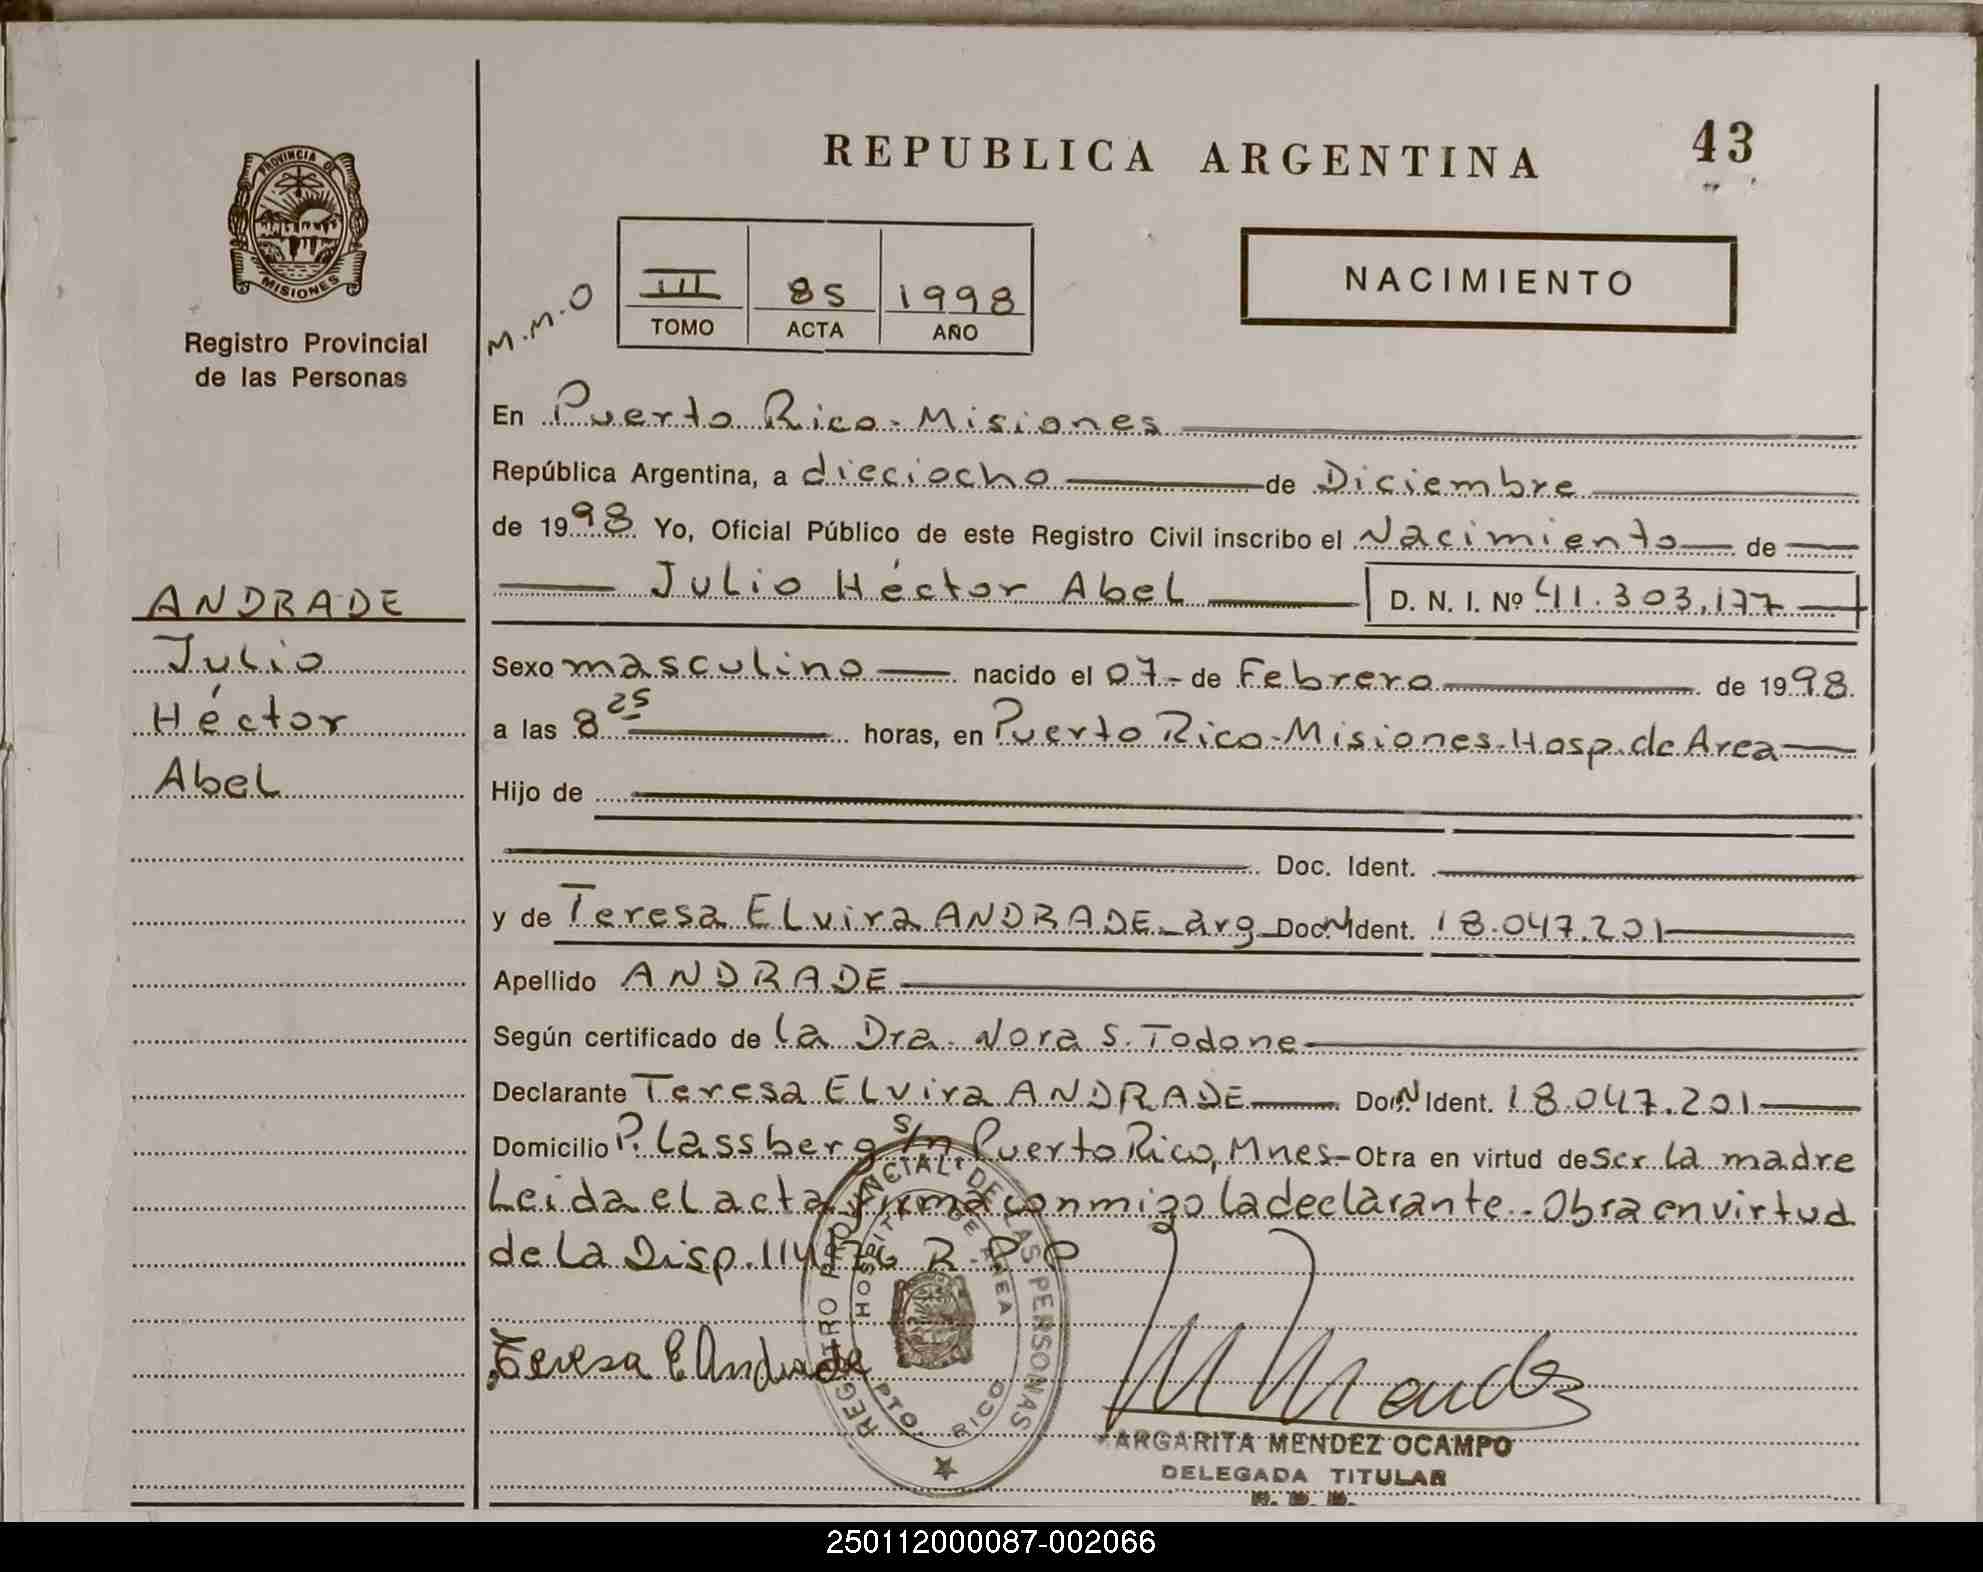 43
REPUBLICA ARGENTINA
PROVINCIA D
MISIONES
Registro Provincial
de las Personas
NACIMIENTO
M.M.O
III 85 1998
TOMO ACTA AÑO
En Puerto Rico-Misiones
República Argentina, a dieciocho de Diciembre
de 1998 Yo, Oficial Público de este Registro Civil inscribo el Nacimiento de
Julio Héctor Abel D. N. I. Nº 41.303.177
ANDRADE
Julio
Héctor
Abel
Sexo masculino nacido el 07- de Febrero de 1998.
a las 8 25 horas, en Puerto Rico-Misiones-Hosp.de Area
Hijo de
Doc. Ident.
y de Teresa Elvira ANDRADE-arg-Doc.N Ident. 18.047.201
Apellido ANDRADE
Según certificado de la Dra. Nora S. Todone
Declarante Teresa Elvira ANDRADE Doc.N Ident. 18.047.201
Domicilio P. Lassberg s/n Puerto Rico, Mnes- Obra en virtud de ser la madre
Leida el acta firma conmigo la declarante.- Obra en virtud
de la Disp. 114/76 R.P.P
Teresa E Andrade
REGISTRO PROVINCIAL DE LAS PERSONAS
HOSPITAL DE AREA
PTO. RICO
M Mendez
MARGARITA MENDEZ OCAMPO
DELEGADA TITULAR
250112000087-002066